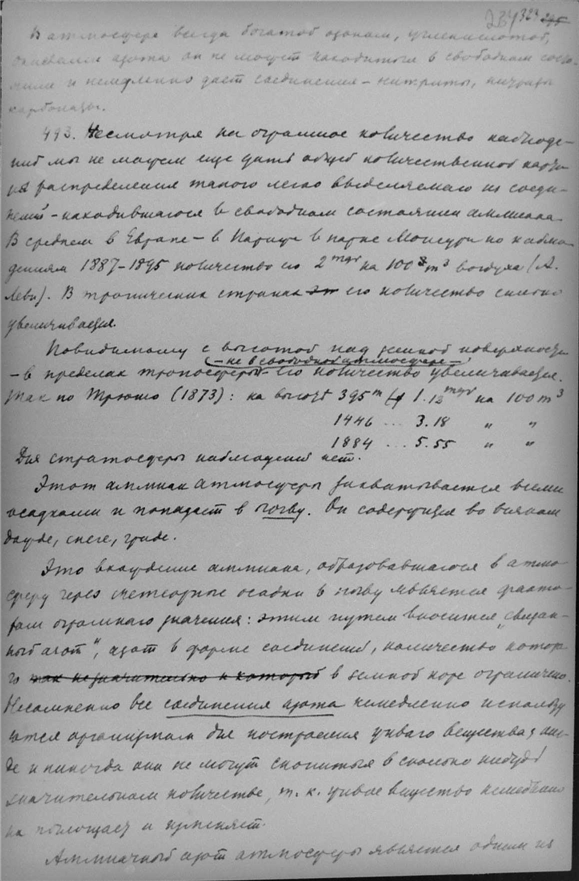 284 323
В атмосфере всегда богатой озоном, углекислотой,
окислами азота он не может находиться в свободном состо-
янии и немедленно дает соединения – нитриты, нитраты
карбонаты.
493. Несмотря на огромное количество наблюде-
ний мы не можем еще дать общей количественной карти-
ны распределения такого легко выделяемого из соеди-
нений – находившагося в свободном состоянии аммиака.
В среднем в Европе – в Париже в парке Монсури по наблю-
дениям 1887–1895 количество его 2 mgr на 100 m³ воздуха (А.
Леви). В тропических странах его количество сильно
увеличивается.
Повидимому с высотой над земной поверхностью
– не в свободной атмосфере –
– в пределах тропосферы его количество увеличивается.
Так по Трюшо (1873): на высоте 395 m 1.12 mgr на 100 m³
1446 ... 3.18 " "
1884 ... 5.55 " "
Для стратосферы наблюдений нет.
Этот аммиак атмосферы захватывается всеми
осадками и попадает в почву. Он содержится во всяком
дожде, снеге, граде.
Это вхождение аммиака, образовавшагося в атмо-
сферу через метеорные осадки в почву является факто-
ром огромного значения: этим путем вносится „связан-
ный азот", азот в форме соединений, количество которо-
го так незначительно и который в земной коре ограничено.
Несомненно все соединения азота немедленно использу-
ются организмами для построения живого вещества;
и никогда они не могут скопиться в сколько нибудь
значительном количестве, т. к. живое вещество немедленно
их поглощает и изменяет.
Аммиачный азот атмосферы является одним из